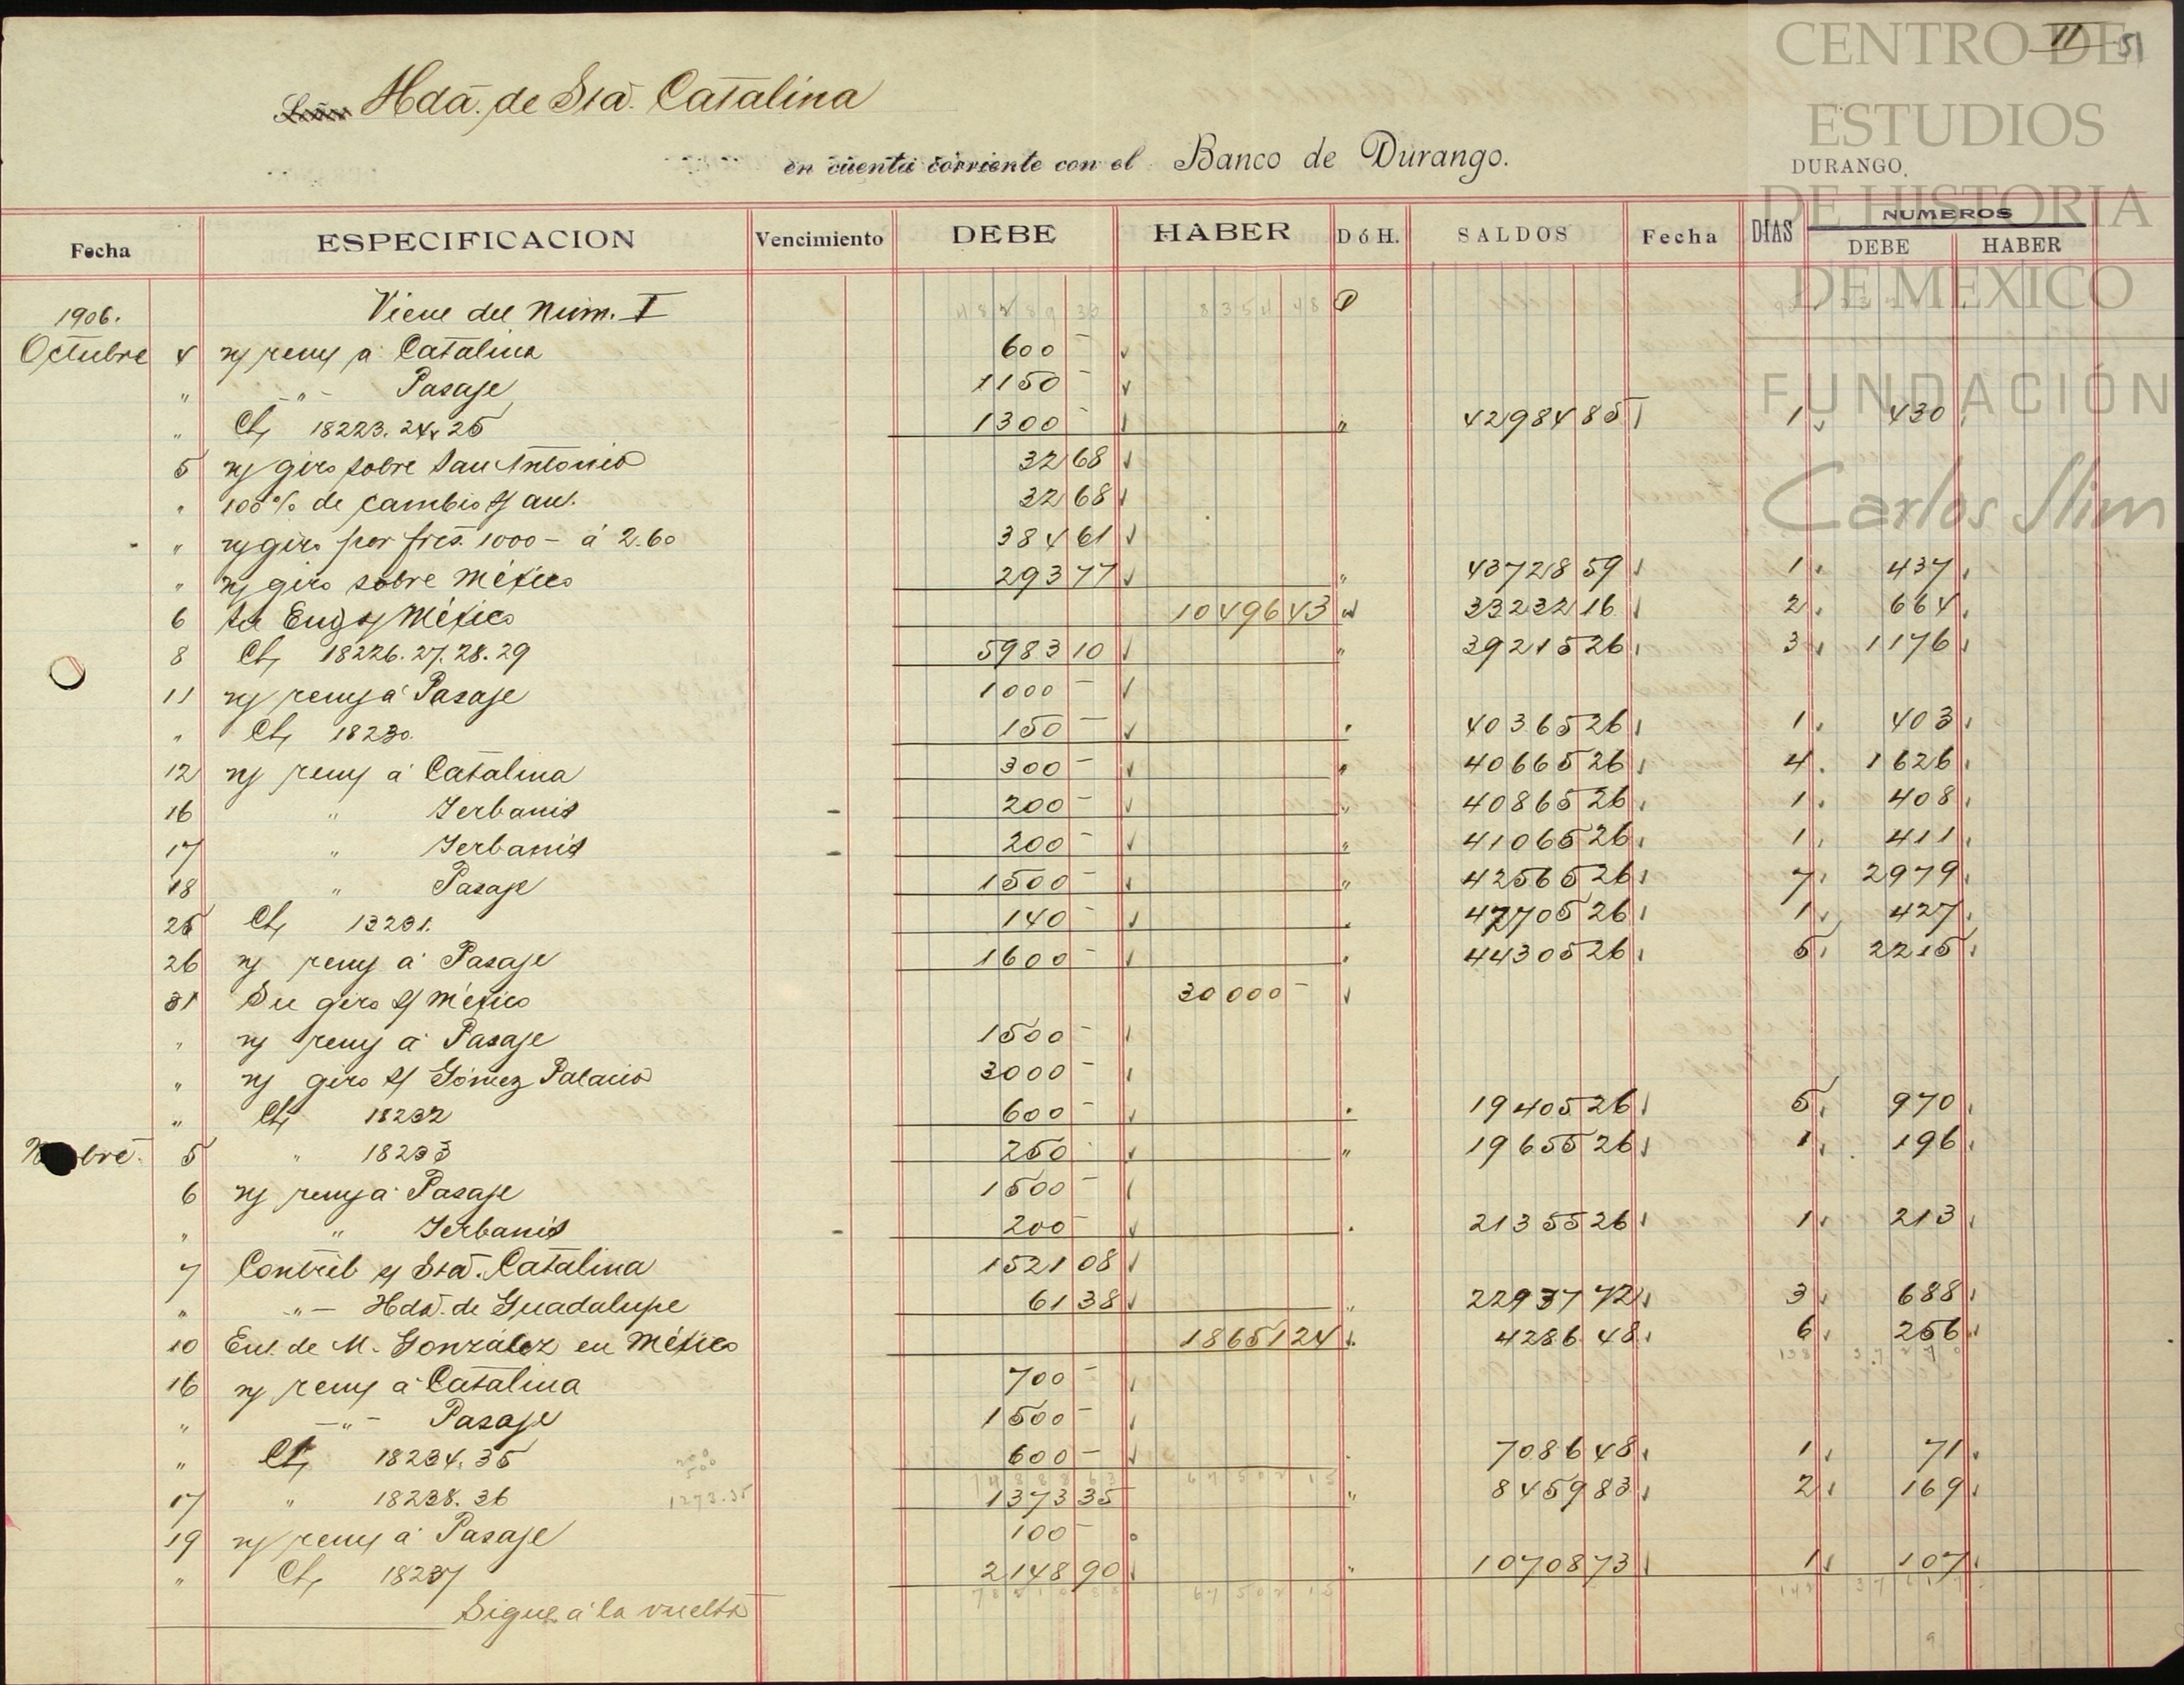 11 51
CENTRO DE
ESTUDIOS
DE HISTORIA
DE MEXICO
FUNDACIÓN
Carlos Slim
Hdã. de Stã. Catalina
en cuenta corriente con el Banco de Durango.
DURANGO.
Fecha ESPECIFICACION Vencimiento DEBE HABER D ó H. SALDOS Fecha DIAS NUMEROS
DEBE HABER
1906. Viene del Núm. I D
Octubre 4 n/ rem/ á Catalina 600 –
" – " – Pasaje 1150 –
" Ch/ 18223. 24 y 25 1300 – " 42984 85 1 430
5 n/ giro sobre San Antonio 32 68
" 100% de cambio s/ ant. 32 68
" n/ giro por frcs. 1000 – á 2.60 384 61
" n/ giro sobre México 293 77 " 43728 59 1 437
6 su Ent/ s/ México 10496 43 " 33232 16 2 664
8 Ch/ 18226. 27. 28. 29 5983 10 " 39215 26 3 1176
11 n/ rem/ á Pasaje 1000 –
" Ch/ 18230. 150 – " 40365 26 1 403
12 n/ rem/ á Catalina 300 – " 40665 26 4 1626
16 " Yerbanis 200 – " 40865 26 1 408
17 " Yerbanis 200 – " 41065 26 1 411
18 " Pasaje 1500 – " 42565 26 7 2979
25 Ch/ 18231. 140 – " 42705 26 1 427
26 n/ rem/ á Pasaje 1600 – " 44305 26 5 2215
31 Su giro s/ México 30000 –
" n/ rem/ á Pasaje 1500 –
" n/ giro s/ Gómez Palacio 3000 –
" Ch/ 18232 600 – " 19405 26 5 970
bre. 5 " 18233 250 " 19655 26 1 196
6 n/ rem/ á Pasaje 1500 –
" " Yerbanis 200 – " 21355 26 1 213
7 Contrib s/ Stã. Catalina 1521 08
" – " – Hdã. de Guadalupe 61 38 " 22937 72 3 688
10 Ent. de M. González en México 18651 24 4286 48 6 256
16 n/ rem/ á Catalina 700 –
" – " – Pasaje 1500 –
" Ch/ 18234. 35 600 – 7086 48 1 71
17 " 18238. 36 1273.35 1373 35 " 8459 83 2 169
19 n/ rem/ á Pasaje 100 –
" Ch/ 18237 2148 90 " 10708 73 1 107
Sigue á la vuelta